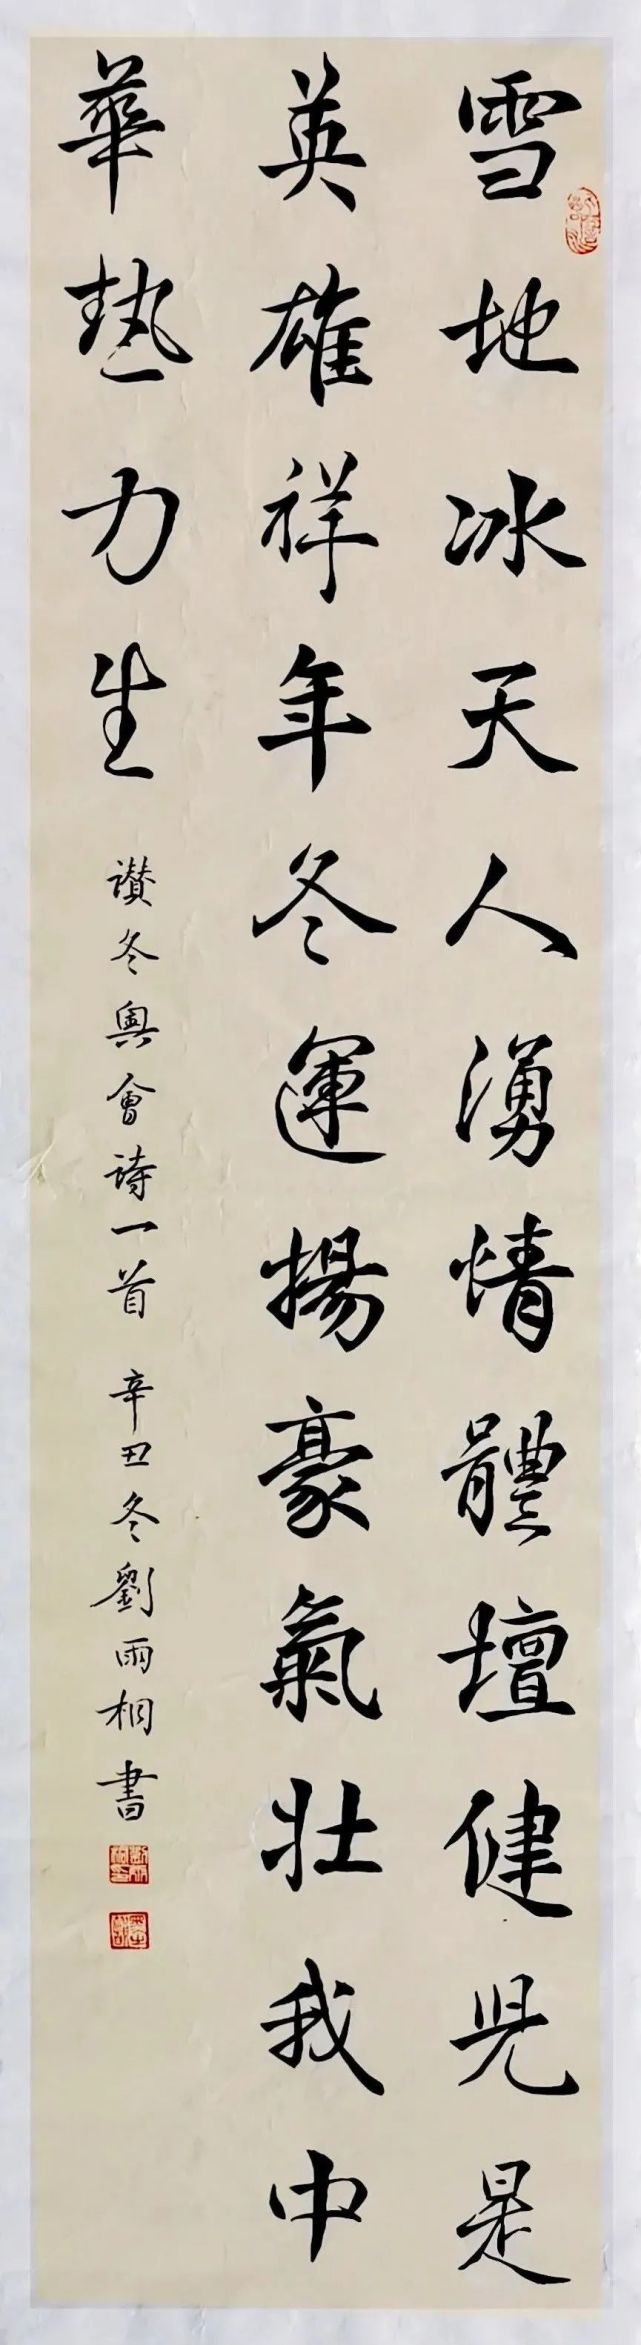 雪地冰天人湧情體壇健児是
英雄祥年冬運揚豪氣壯我中
華热力生
讚冬奧會詩一首 辛丑冬劉雨相書